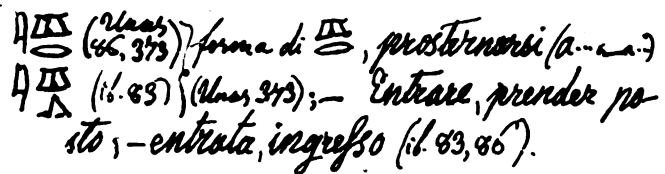 (Unas 86, 373) forma di , prosternarsi (a......)
(ib. 83) (Unas 393); — Entrare, prender po-
sto; — entrata, ingresso (ib. 83, 86).